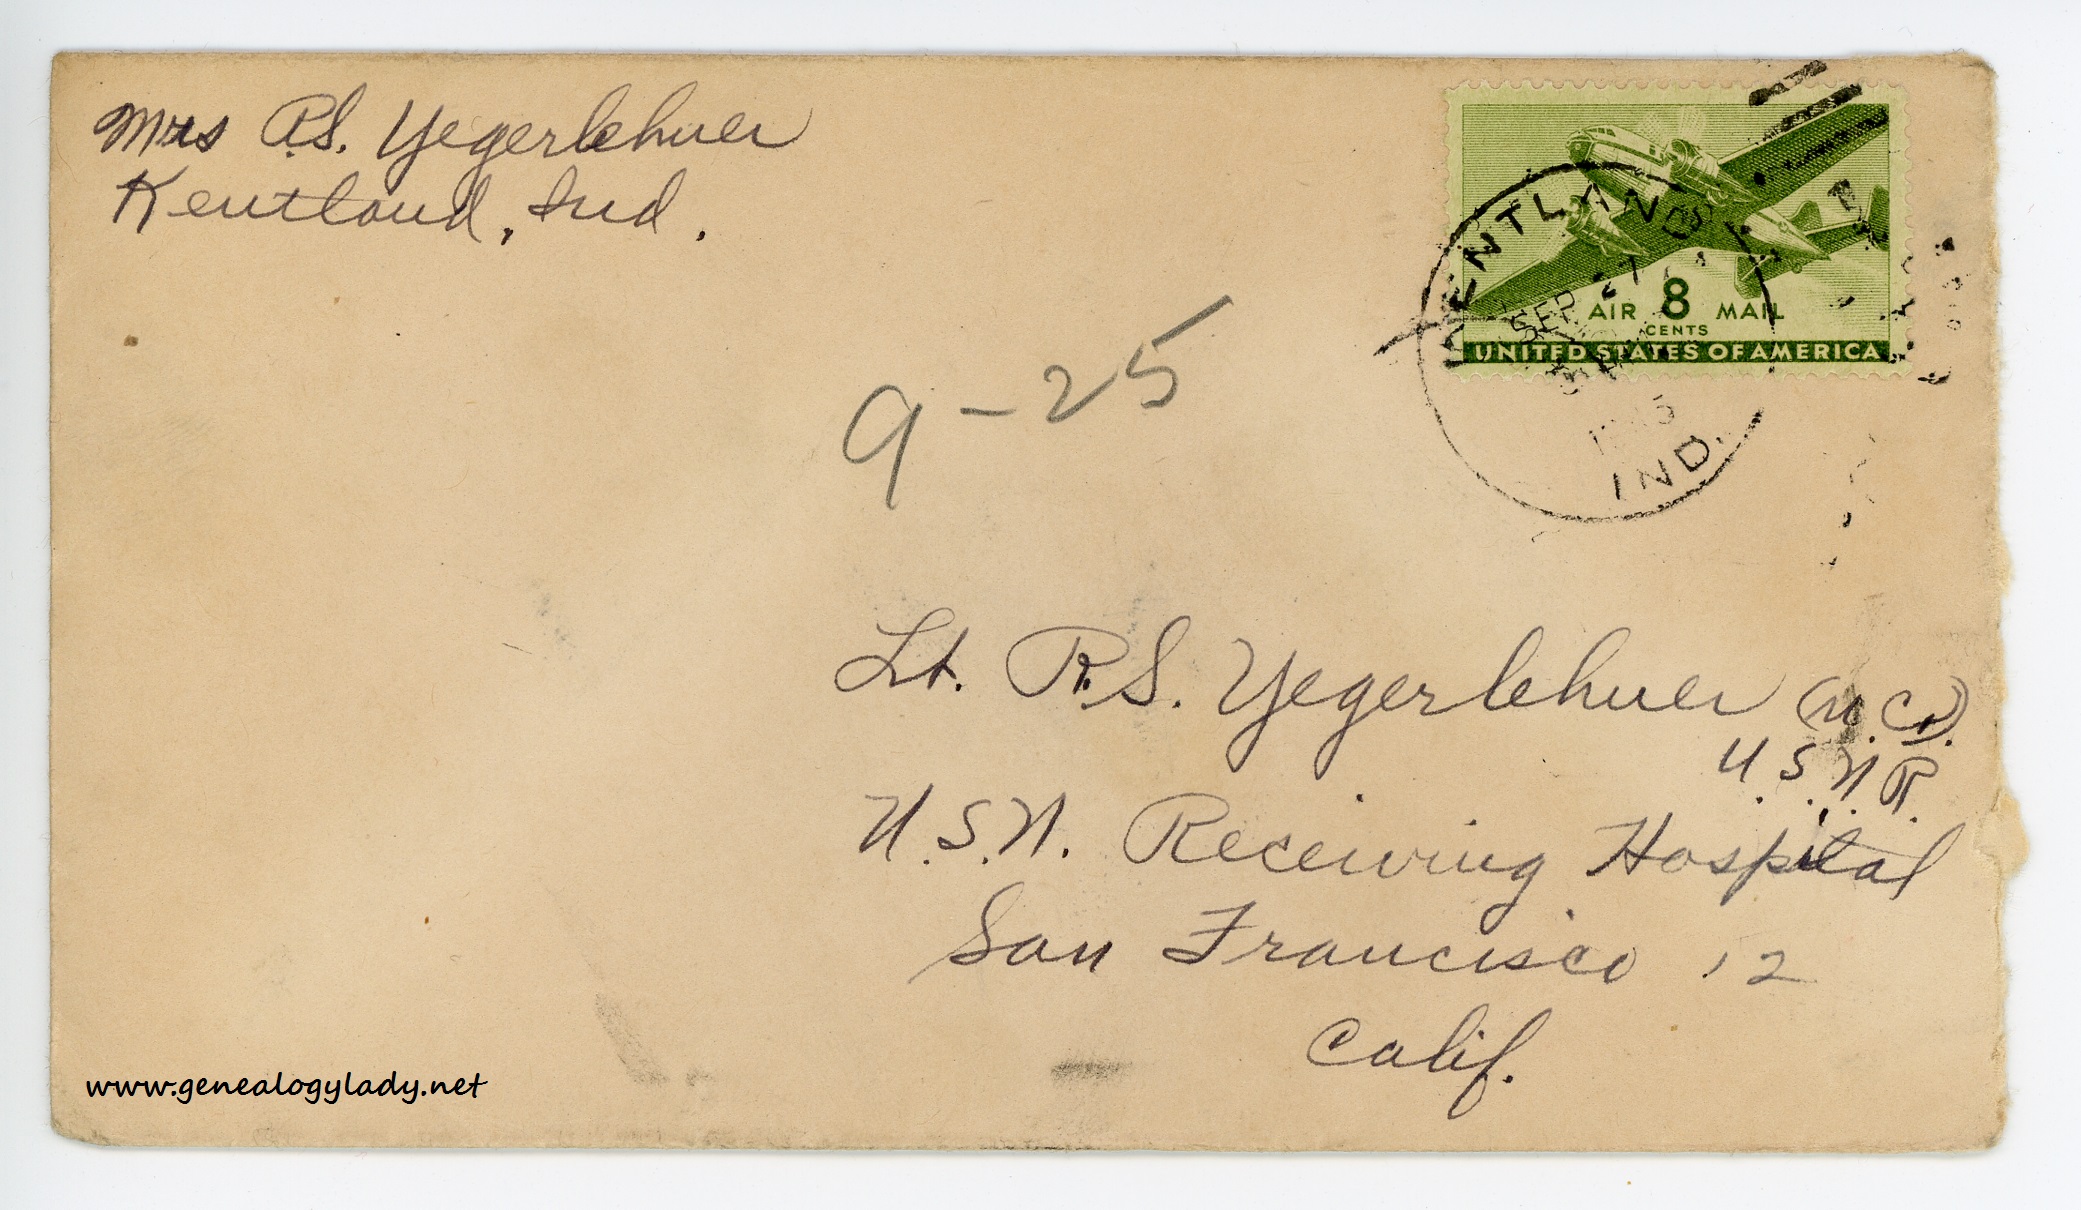 Mrs R.S. Yegerlehner
Kentland, Ind.
KENTLAND
SEP 27
1945
IND.
AIR 8 MAIL
CENTS
UNITED STATES OF AMERICA
9-25
Lt. R.S. Yegerlehner (M.C.)
U.S.N.R.
U.S.N. Receiving Hospital
San Francisco 12
Calif.
www.genealogylady.net